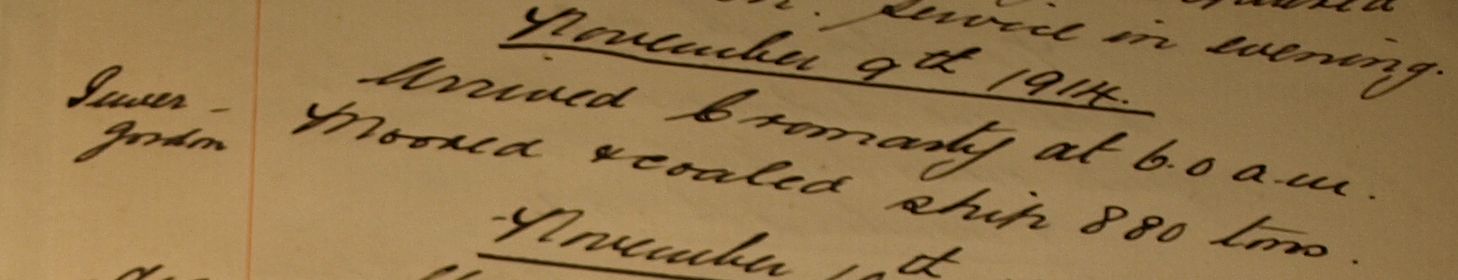 Service in evening.
November 9th 1914.
Inver-
gordon
Arrived Cromarty at 6.0 a.m.
Moored & coaled ship 880 tons.
November 10th